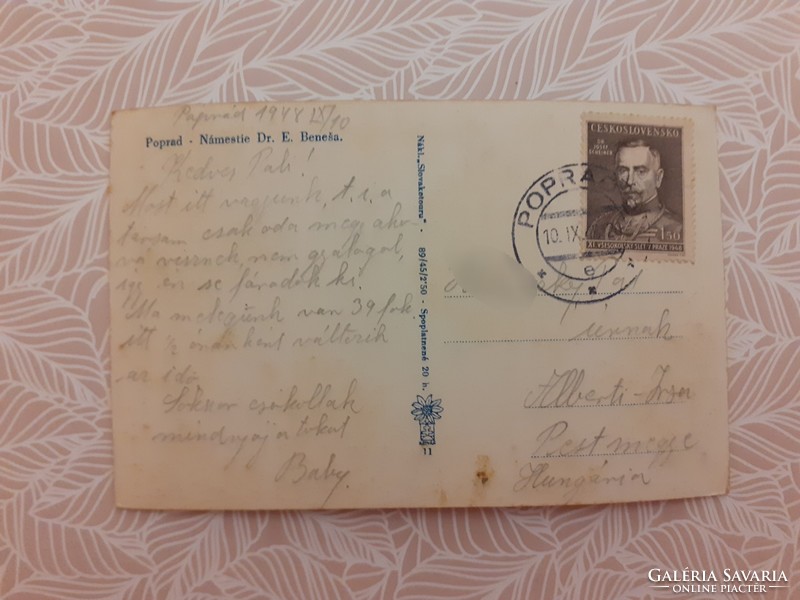 Poprád 1948 IX/10
Poprad - Námestie Dr. E. Beneša.
Kedves Pali!
Most itt vagyunk, t. i. a
társam csak oda megy aho-
vá visznek, nem gyalogol,
így én se fáradok ki.
Ma melegünk van 39 fok.
itt óránként változik
az idő
Sokszor csókollak
mindnyájatokat
Baby
Nákl. „Slovakotoura“ · 89/45/2'50 · Spoplatnené 20 h.
11
ČESKOSLOVENSKO
DR.
JOSEF
SCHEINER
1.50
XI. VŠESOKOLSKÝ SLET V PRAZE 1948
POPRAD
10. IX.
e
úrnak
Alberti-Irsa
Pest megye
Hungária
GALÉRIA SAVARIA
ONLINE PIACTÉR